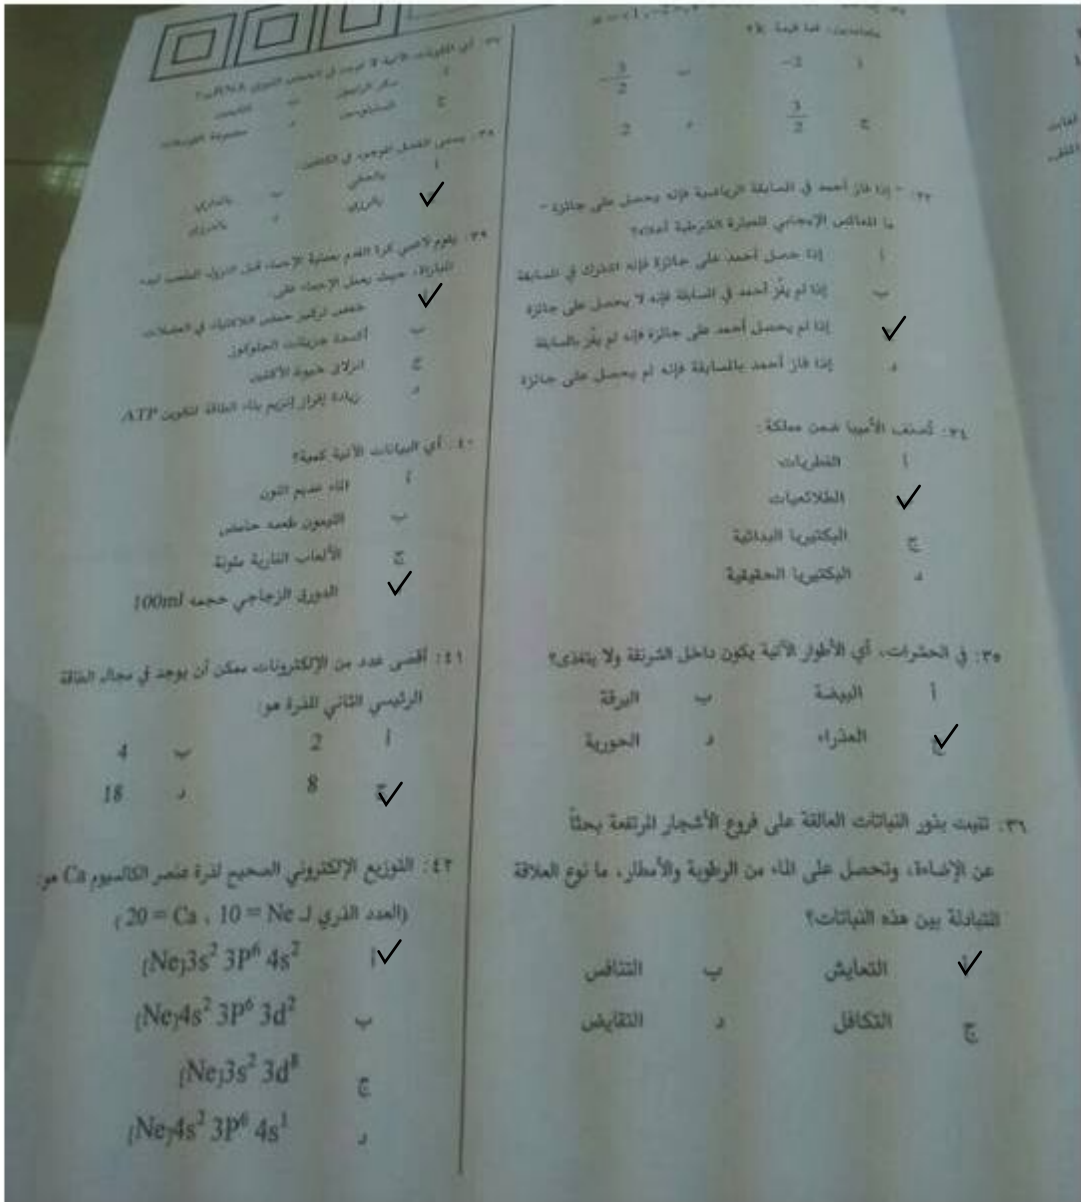 متعامدين، فما قيمة k؟
أ -2 ب -3/2
ج 3/2 د 2
٣٣: - إذا فاز أحمد في المسابقة الرياضية فإنه يحصل على جائزة -
ما المعاكس الإيجابي للعبارة الشرطية أعلاه؟
أ إذا حصل أحمد على جائزة فإنه اشترك في المسابقة
ب إذا لم يفُز أحمد في المسابقة فإنه لا يحصل على جائزة
إذا لم يحصل أحمد على جائزة فإنه لم يفُز بالمسابقة
د إذا فاز أحمد بالمسابقة فإنه لم يحصل على جائزة
٣٤: تُصنف الأميبا ضمن مملكة:
أ الفطريات
الطلائعيات
ج البكتيريا البدائية
د البكتيريا الحقيقية
٣٥: في الحشرات، أي الأطوار الآتية يكون داخل الشرنقة ولا يتغذى؟
أ البيضة ب اليرقة
ج العذراء د الحورية
٣٦: تنبت بذور النباتات العالقة على فروع الأشجار المرتفعة بحثاً
عن الإضاءة، وتحصل على الماء من الرطوبة والأمطار، ما نوع العلاقة
المتبادلة بين هذه النباتات؟
أ التعايش ب التنافس
ج التكافل د التقايض
٣٧: أي المكونات الآتية لا توجد في الحمض النووي RNA؟
أ سكر الرايبوز ب
ج السايتوسين د مجموعة الفوسفات
٣٨: يسمى المفصل الموجود في الكتفين:
أ ب
بالرزي د
٣٩: يقوم لاعبي كرة القدم بعملية الإحماء قبل النزول للملعب لبدء
المباراة، حيث يعمل الإحماء على:
خفض تركيز حمض اللاكتيك في العضلات
ب أكسدة جزيئات الجلوكوز
ج انزلاق خيوط الأكتين
د زيادة إفراز إنزيم بناء الطاقة لتكوين ATP
٤٠: أي البيانات الآتية كمية؟
أ الماء عديم اللون
ب الليمون طعمه حامض
ج الألعاب النارية ملونة
الدورق الزجاجي حجمه 100ml
٤١: أقصى عدد من الإلكترونات ممكن أن يوجد في مجال الطاقة
الرئيسي الثاني للذرة هو:
أ 2 ب 4
ج 8 د 18
٤٢: التوزيع الإلكتروني الصحيح لذرة عنصر الكالسيوم Ca هو:
(العدد الذري لـ 20 = Ca ، 10 = Ne)
أ [Ne]3s² 3P⁶ 4s²
ب [Ne]4s² 3P⁶ 3d²
ج [Ne]3s² 3d⁸
د [Ne]4s² 3P⁶ 4s¹